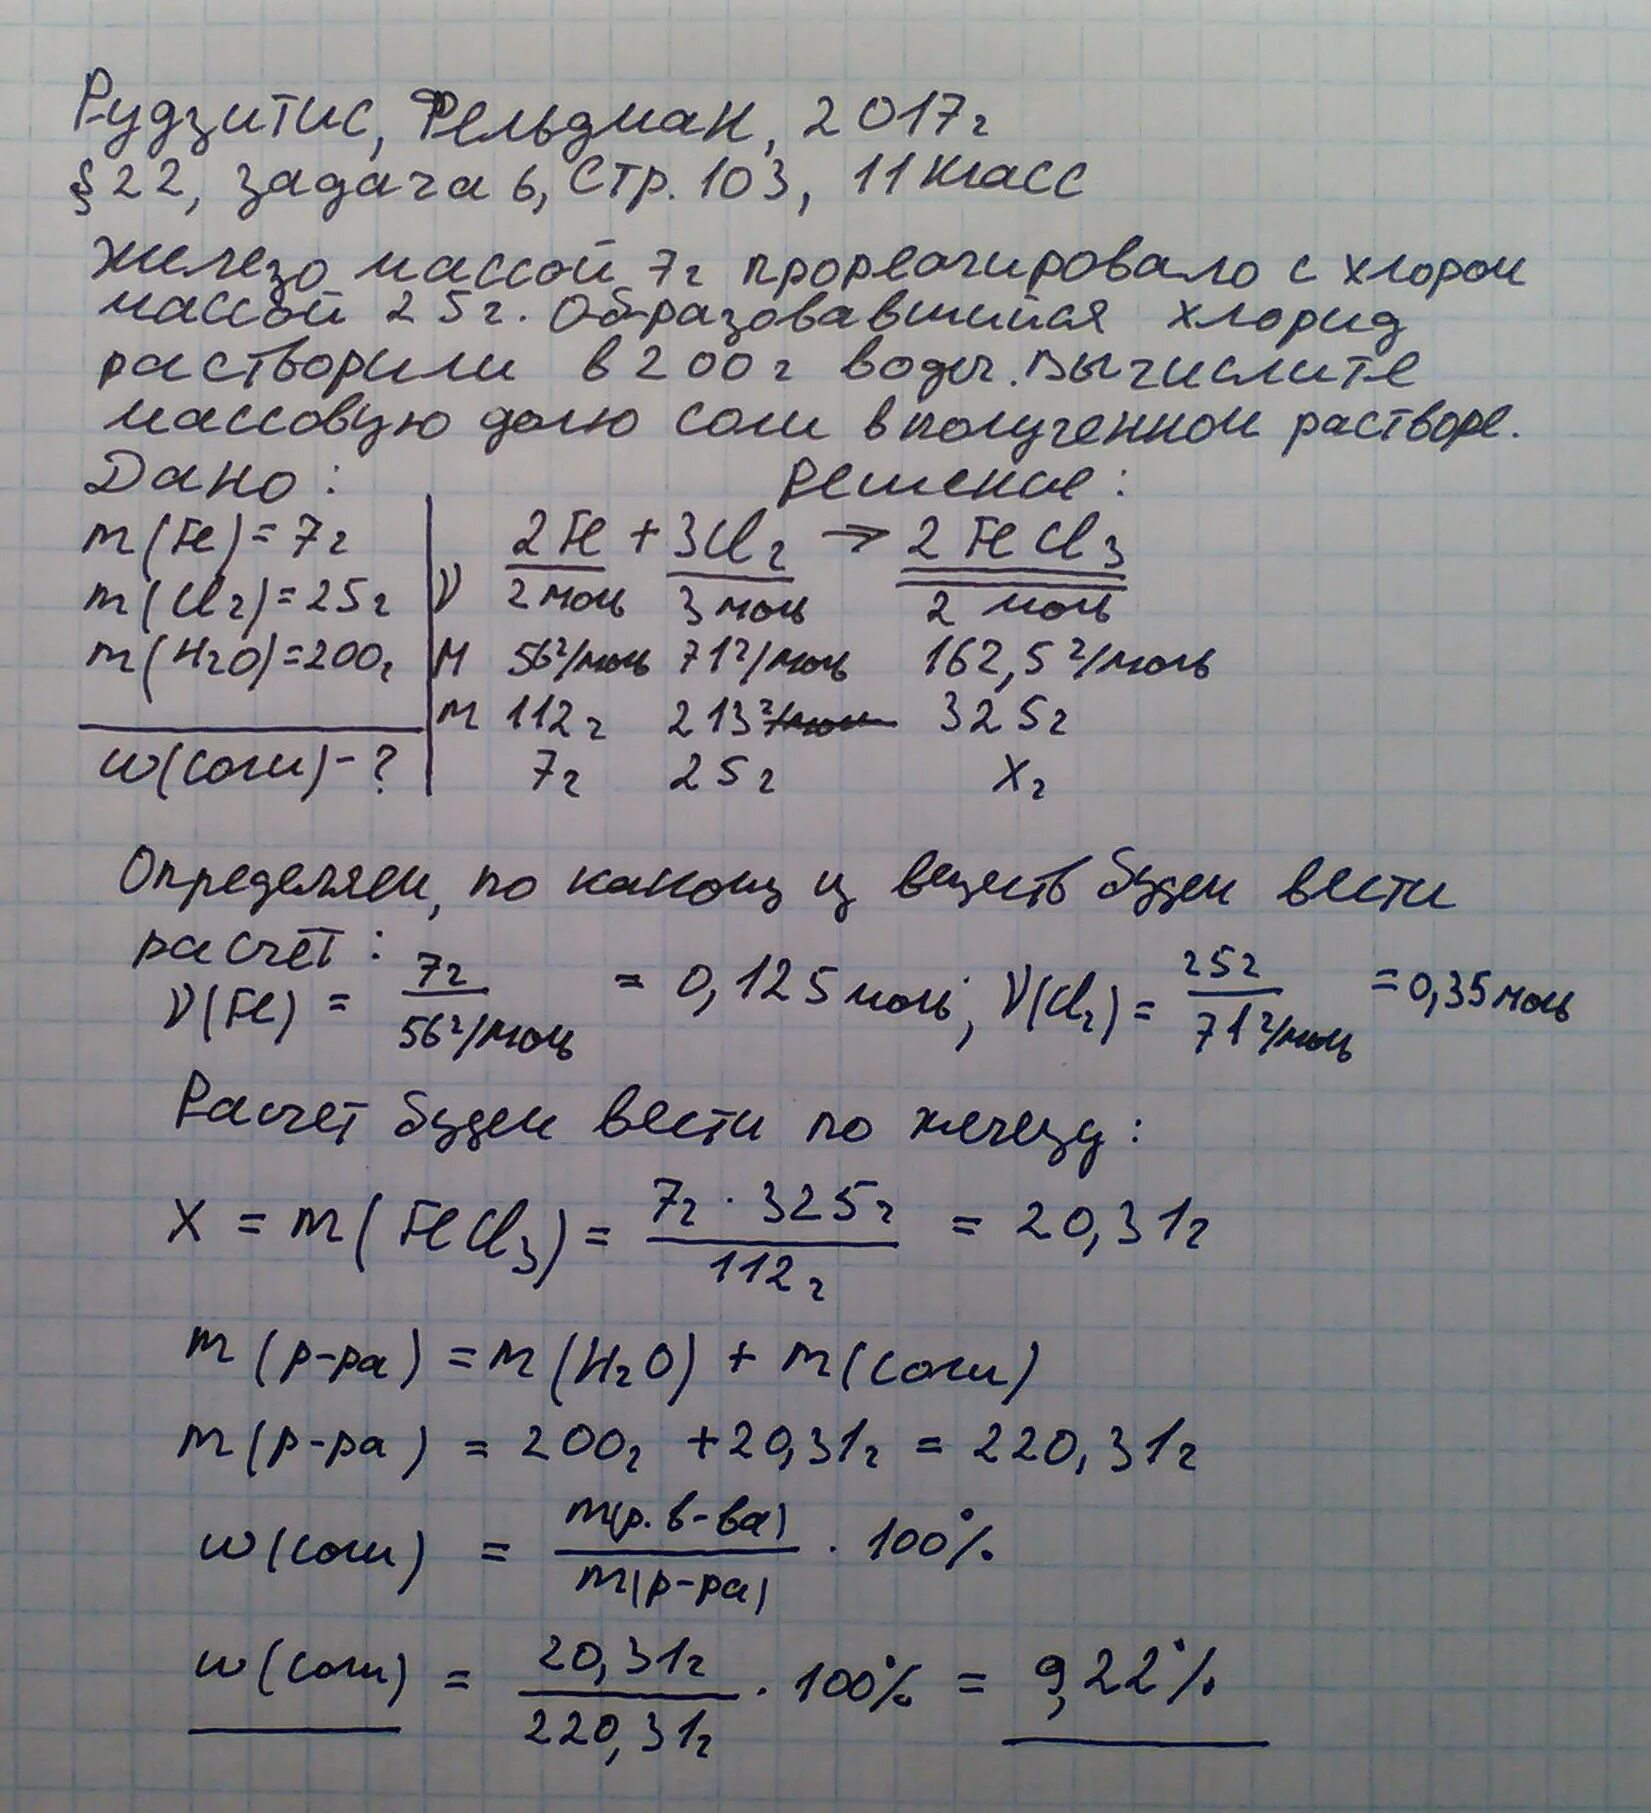 Рудзитис, Фельдман, 2017г
§22, задача 6, стр. 103, 11 класс
Железо массой 7г прореагировало с хлором
массой 25г. Образовавшийся хлорид
растворили в 200г воды. Вычислите
массовую долю соли в полученном растворе.
Дано: Решение:
m(Fe)=7г 2Fe + 3Cl₂ → 2FeCl₃
m(Cl₂)=25г ν 2моль 3моль 2 моль
m(H₂O)=200г M 56г/моль 71г/моль 162,5г/моль
m 112г 213г/моль 325г
w(соли)-? 7г 25г Xг
Определяем, по какому из веществ будем вести
расчёт:
ν(Fe) = 7г / 56г/моль = 0,125моль; ν(Cl₂) = 25г / 71г/моль = 0,35моль
Расчет будем вести по железу:
X = m(FeCl₃) = 7г · 325г / 112г = 20,31г
m(р-ра) = m(H₂O) + m(соли)
m(р-ра) = 200г + 20,31г = 220,31г
w(соли) = m(р.в-ва) / m(р-ра) · 100%
w(соли) = 20,31г / 220,31г · 100% = 9,22%